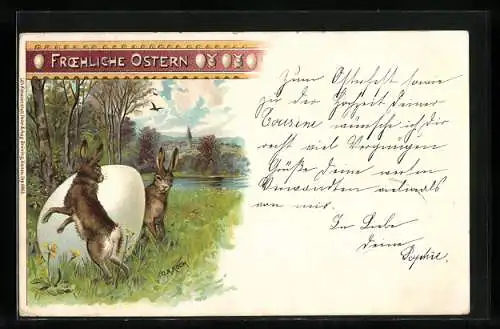 FRŒHLICHE OSTERN
Zum Osterfest sowie
zu der Hochzeit Deiner
Cousine wünsche ich Dir
recht viel Vergnügen
Grüße Deine werten
Verwandten vielmals
von mir.
In Liebe
Deine
Sophie.